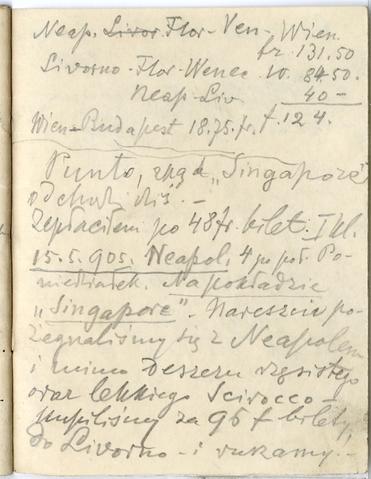 Neap. Livor. Flor. Ven. Wien
fr. 131.50
Livorno - Flor. Wenec. W. 84.50.
Neap-Liv 40 -
Wien-Budapest 18.75. fr. f. 124.
Punto, "Singapore"
odchodzi dziś. -
Zapłaciłem po 48 fr. bilet. I kl.
15.5.905. Neapol. 4 po poł. Po-
niedziałek. Na pokładzie
"Singapore". Nareszcie po-
żegnaliśmy się z Neapolem
i mimo Deszczu rzęsistego
oraz lekkiego Scirocco -
kupiliśmy za 96 f bilety
do Livorno - i